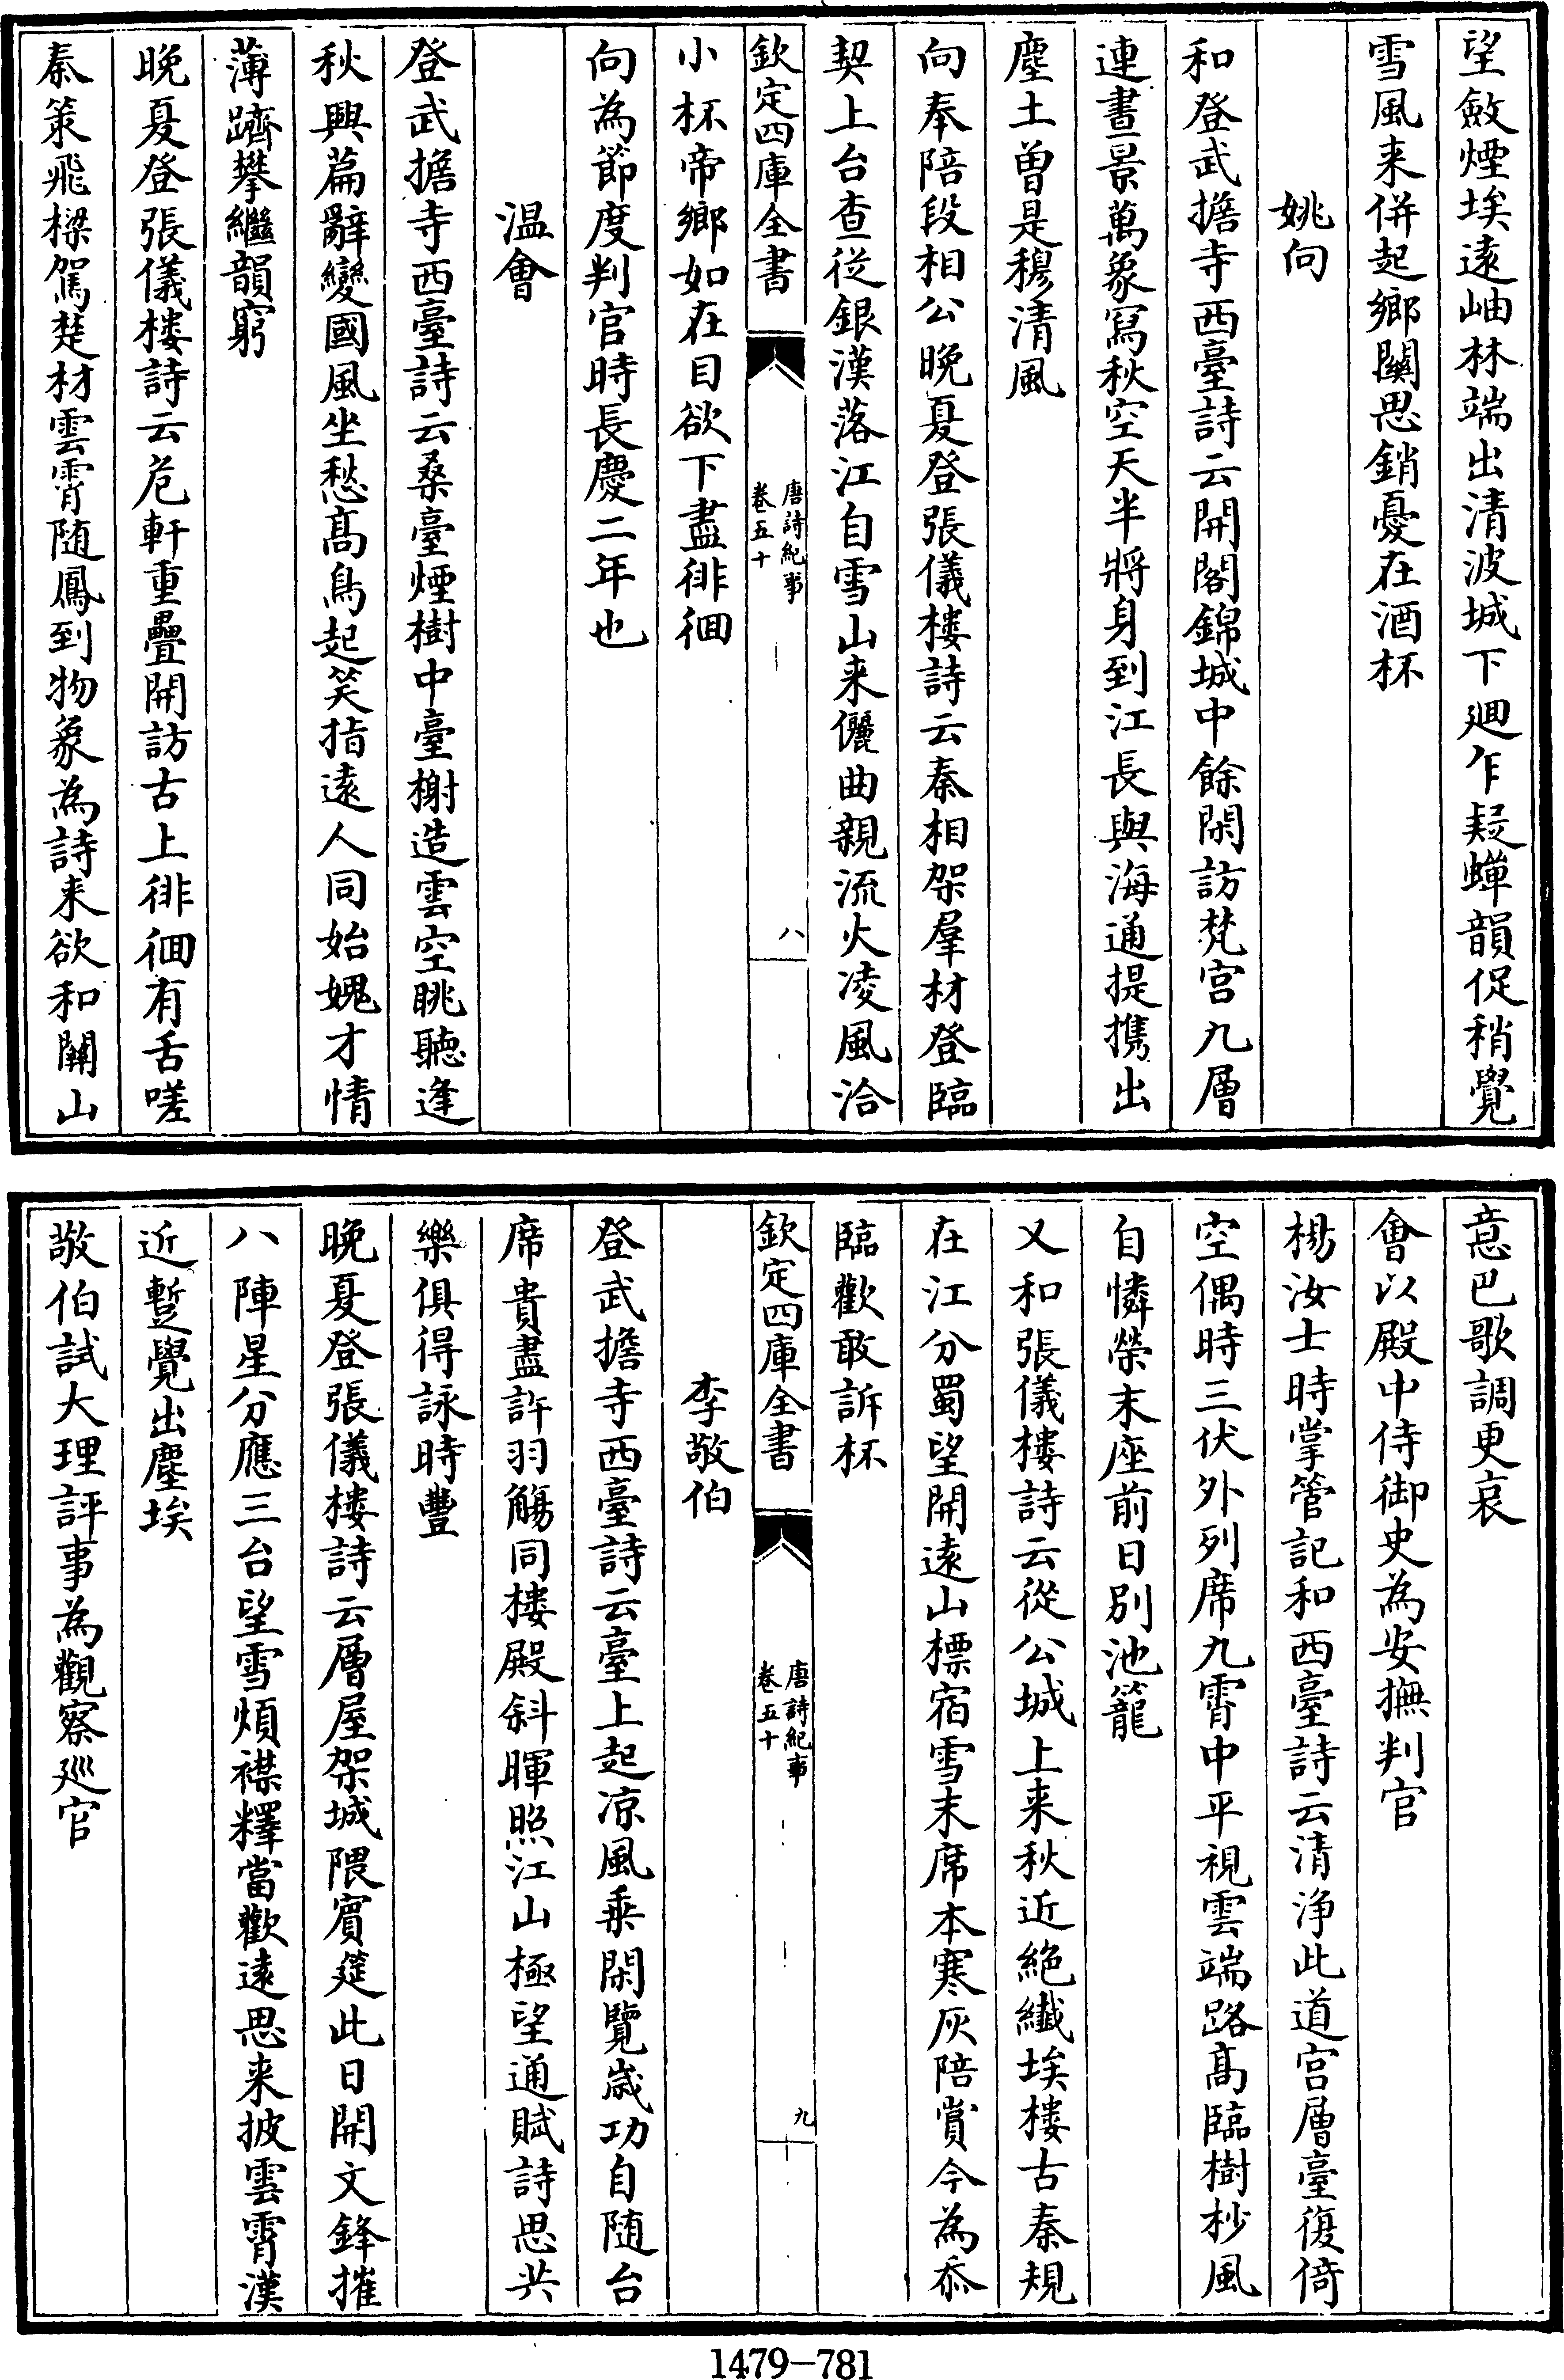 望斂煙埃遠岫林端出清波城下廻乍疑蟬韻促稍覺
雪風来併起鄉關思銷憂在酒杯
姚向
和登武擔寺西臺詩云開閣錦城中餘閑訪梵宫九層
連晝景萬象寫秋空天半將身到江長與海通提携出
塵土曽是穆清風
向奉陪段相公晚夏登張儀樓詩云秦相架羣材登臨
契上台查從銀漢落江自雪山来儷曲親流火凌風洽
欽定四庫全書
唐詩紀事
卷五十
八
小杯帝鄉如在目欲下盡徘徊
向為節度判官時長慶二年也
温會
登武擔寺西臺詩云桑臺煙樹中臺榭造雲空眺聽逢
秋興篇辭變國風坐愁髙鳥起笑指遠人同始媿才情
薄躋攀繼韻窮
晚夏登張儀樓詩云危軒重疊開訪古上徘徊有舌嗟
秦策飛樑駕楚材雲霄随鳳到物象為詩来欲和關山
意巴歌調更哀
會以殿中侍御史為安撫判官
楊汝士時掌管記和西臺詩云清浄此道宫層臺復倚
空偶時三伏外列席九霄中平視雲端路髙臨樹杪風
自憐榮末座前日别池籠
又和張儀樓詩云從公城上来秋近絶纖埃樓古秦規
在江分蜀望開遠山標宿雪末席本寒灰陪賞今為忝
欽定四庫全書
唐詩紀事
卷五十
九
臨歡敢訴杯
李敬伯
登武擔寺西臺詩云臺上起凉風乗閑覽歳功自随台
席貴盡許羽觴同樓殿斜暉照江山極望通賦詩思共
樂俱得詠時豐
晚夏登張儀樓詩云層屋架城隈賓筵此日開文鋒摧
八陣星分應三台望雪煩襟釋當歡遠思来披雲霄漢
近蹔覺出塵埃
敬伯試大理評事為觀察廵官
1479-781